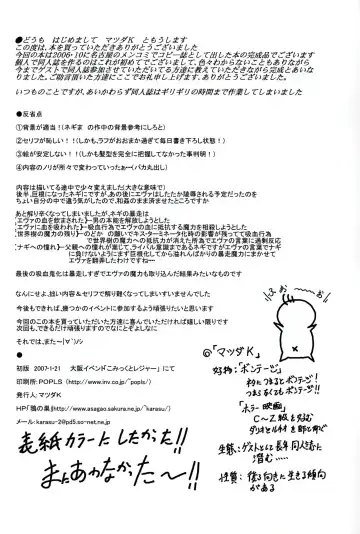 ●どうも　はじめまして　マツダＫ　ともうします
この度は、本を買っていただきありがとうございました
今回の本は2006・10に名古屋のメンコミでコピー誌として出した本の完成品でございます
個人で同人誌を作るのはこれが初めてでございます、色々わからないこともありながら
今までゲストで同人誌参加させていただいてる方達に教えていただきながら完成とあいな
りました。ご助言頂いた方達にここでお礼申し上げます、ありがとうございました
いつものことですが、あいかわらず同人誌はギリギリの時間まで作業してしまいました
●反省点
①背景が適当！（ネギま　の作中の背景参考にしろと）
②セリフが恥しい！！（しかも、ラフがおおまか過ぎて毎日書き下ろし状態！）
③絵が安定しない！！（しかも髪型を完全に把握してなかった事判明！）
④内容のノリが所々で変わっていったぁ～（バカ丸出し）
内容は描いてる途中で少々変えました（大きな意味で）
後半、巨根になったネギにですが、あの後にエヴァはしたたか陵辱される予定だったのを
ちょい自分の中で違う気がしたので、和姦のまま済ませたところですか
あと解り辛くなってしまいましたが、ネギの暴走は
【エヴァの血を飲まされた】―男の本能を解放しようとした
【エヴァに血を吸われた】―吸血人化でエヴァの血に抵抗する魔力を相殺してしまった
【世界樹の魔力の残り】―のどか　の願いでキスターミネータ化時の影響が残ってて吸血行為
で世界樹の魔力への抵抗力が消えた所為でエヴァの言葉に過剰反応
【ナギへの憧れ】―父親への憧れが高じて、ライバル意識まであるネギですがエヴァの言葉でナギ
に負けないように巨根化してから溢れんばかりの暴走魔力にまかせて
エヴァを翻弄したわけですね…
最後の吸血鬼化は暴走しすぎでエヴァの魔力も取り込んだ結果みたいなものです
なんにせよ、拙い内容＆セリフで解り難くなってしまいすいませんでした
今後もできれば、幾つかのイベントに参加するよう頑張りたいと思います
今回のこの本を買っていただいた方達に喜んでいただければ嬉しい限りです
次回も、できるだけ頑張りますのでなにとぞよしなに
それでは、また～（´▽`）ノシ
●
初版　2007・1・21　　大阪イベント『こみっくトレジャー』　にて
印刷所：POPLS　（http://www.inv.co.jp/~popls/）
発行人：マツダＫ
HP「鴉の巣」（http://www.asagao.sakura.ne.jp/~karasu/）
メール：karasu-2@pd5.so-net.ne.jp
表紙カラーにしたかった!!
まにあわなかったー!!
◎「マツダＫ」
好物：「ボンテージ」
ネタにつまるとボンテージ！
つまらなくてもボンテージ!!
「ホラー映画」
Ｃ～Ｚ級を好む
ダリオとルチオを師と仰ぐ
生態：ゲストとして長年同人誌に
潜む…
性質：後ろ向きに生きる傾向
がある